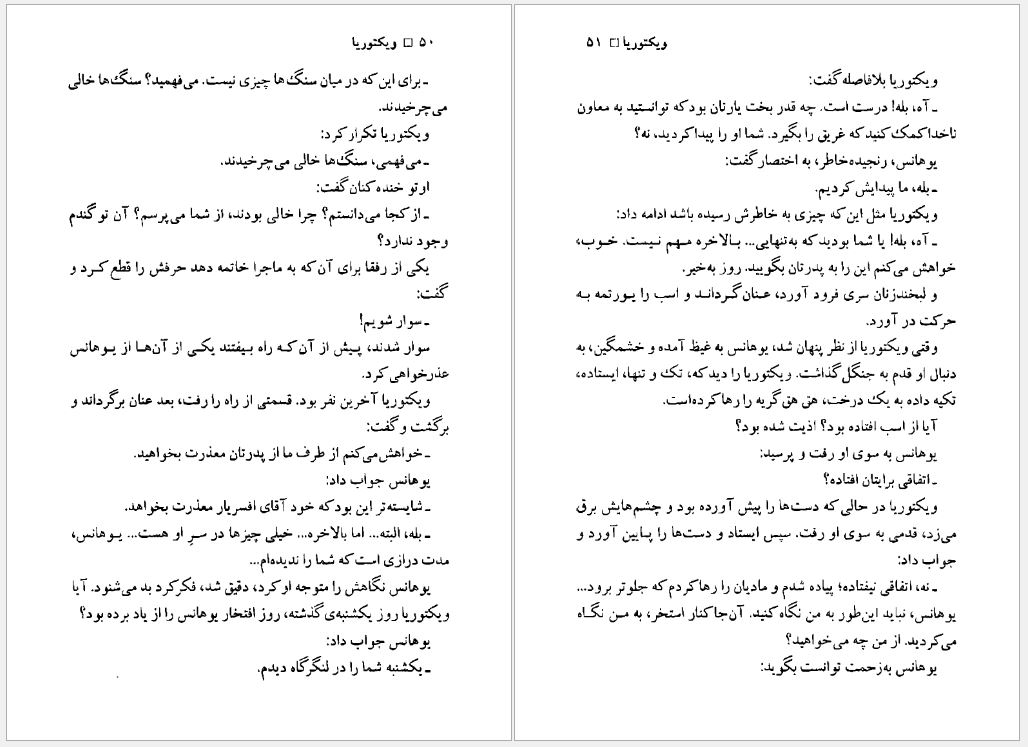 ۵۰ □ ویکتوریا
ـ برای این‌که در میان سنگ‌ها چیزی نیست. می‌فهمید؟ سنگ‌ها خالی
می‌چرخیدند.
ویکتوریا تکرار کرد:
ـ می‌فهمی، سنگ‌ها خالی می‌چرخیدند.
اوتو خنده‌کنان گفت:
ـ از کجا می‌دانستم؟ چرا خالی بودند، از شما می‌پرسم؟ آن تو گندم
وجود ندارد؟
یکی از رفقا برای آن‌که به ماجرا خاتمه دهد حرفش را قطع کرد و
گفت:
ـ سوار شویم!
سوار شدند، پیش از آن‌که راه بیفتند یکی از آن‌ها از یوهانس
عذرخواهی کرد.
ویکتوریا آخرین نفر بود. قسمتی از راه را رفت، بعد عنان برگرداند و
برگشت و گفت:
ـ خواهش می‌کنم از طرف ما از پدرتان معذرت بخواهید.
یوهانس جواب داد:
ـ شایسته‌تر این بود که خود آقای افسریار معذرت بخواهد.
ـ بله، البته... اما بالاخره... خیلی چیزها در سرِ او هست... یوهانس،
مدت درازی است که شما را ندیده‌ام...
یوهانس نگاهش را متوجه او کرد، دقیق شد، فکر کرد بد می‌شنود. آیا
ویکتوریا روز یکشنبه‌ی گذشته، روز افتخار یوهانس را از یاد برده بود؟
یوهانس جواب داد:
ـ یکشنبه شما را در لنگرگاه دیدم.
ویکتوریا □ ۵۱
ویکتوریا بلافاصله گفت:
ـ آه، بله! درست است. چه قدر بخت یارتان بود که توانستید به معاون
ناخدا کمک کنید که غریق را بگیرد. شما او را پیدا کردید، نه؟
یوهانس، رنجیده‌خاطر، به اختصار گفت:
ـ بله، ما پیدایش کردیم.
ویکتوریا مثل این‌که چیزی به خاطرش رسیده باشد ادامه داد:
ـ آه، بله! یا شما بودید که به‌تنهایی... بالاخره مهم نیست. خوب،
خواهش می‌کنم این را به پدرتان بگویید. روز به‌خیر.
و لبخندزنان سری فرود آورد، عنان گرداند و اسب را یورتمه به
حرکت در آورد.
وقتی ویکتوریا از نظر پنهان شد، یوهانس به غیظ آمده و خشمگین، به
دنبال او قدم به جنگل گذاشت. ویکتوریا را دید که، تک و تنها، ایستاده،
تکیه داده به یک درخت، هق هق گریه را رها کرده‌است.
آیا از اسب افتاده بود؟ اذیت شده بود؟
یوهانس به سوی او رفت و پرسید:
ـ اتفاقی برایتان افتاده؟
ویکتوریا در حالی که دست‌ها را پیش آورده بود و چشم‌هایش برق
می‌زد، قدمی به سوی او رفت. سپس ایستاد و دست‌ها را پایین آورد و
جواب داد:
ـ نه، اتفاقی نیفتاده؛ پیاده شدم و مادیان را رها کردم که جلوتر برود...
یوهانس، نباید این‌طور به من نگاه کنید. آن‌جا کنار استخر، به من نگاه
می‌کردید. از من چه می‌خواهید؟
یوهانس به‌زحمت توانست بگوید: